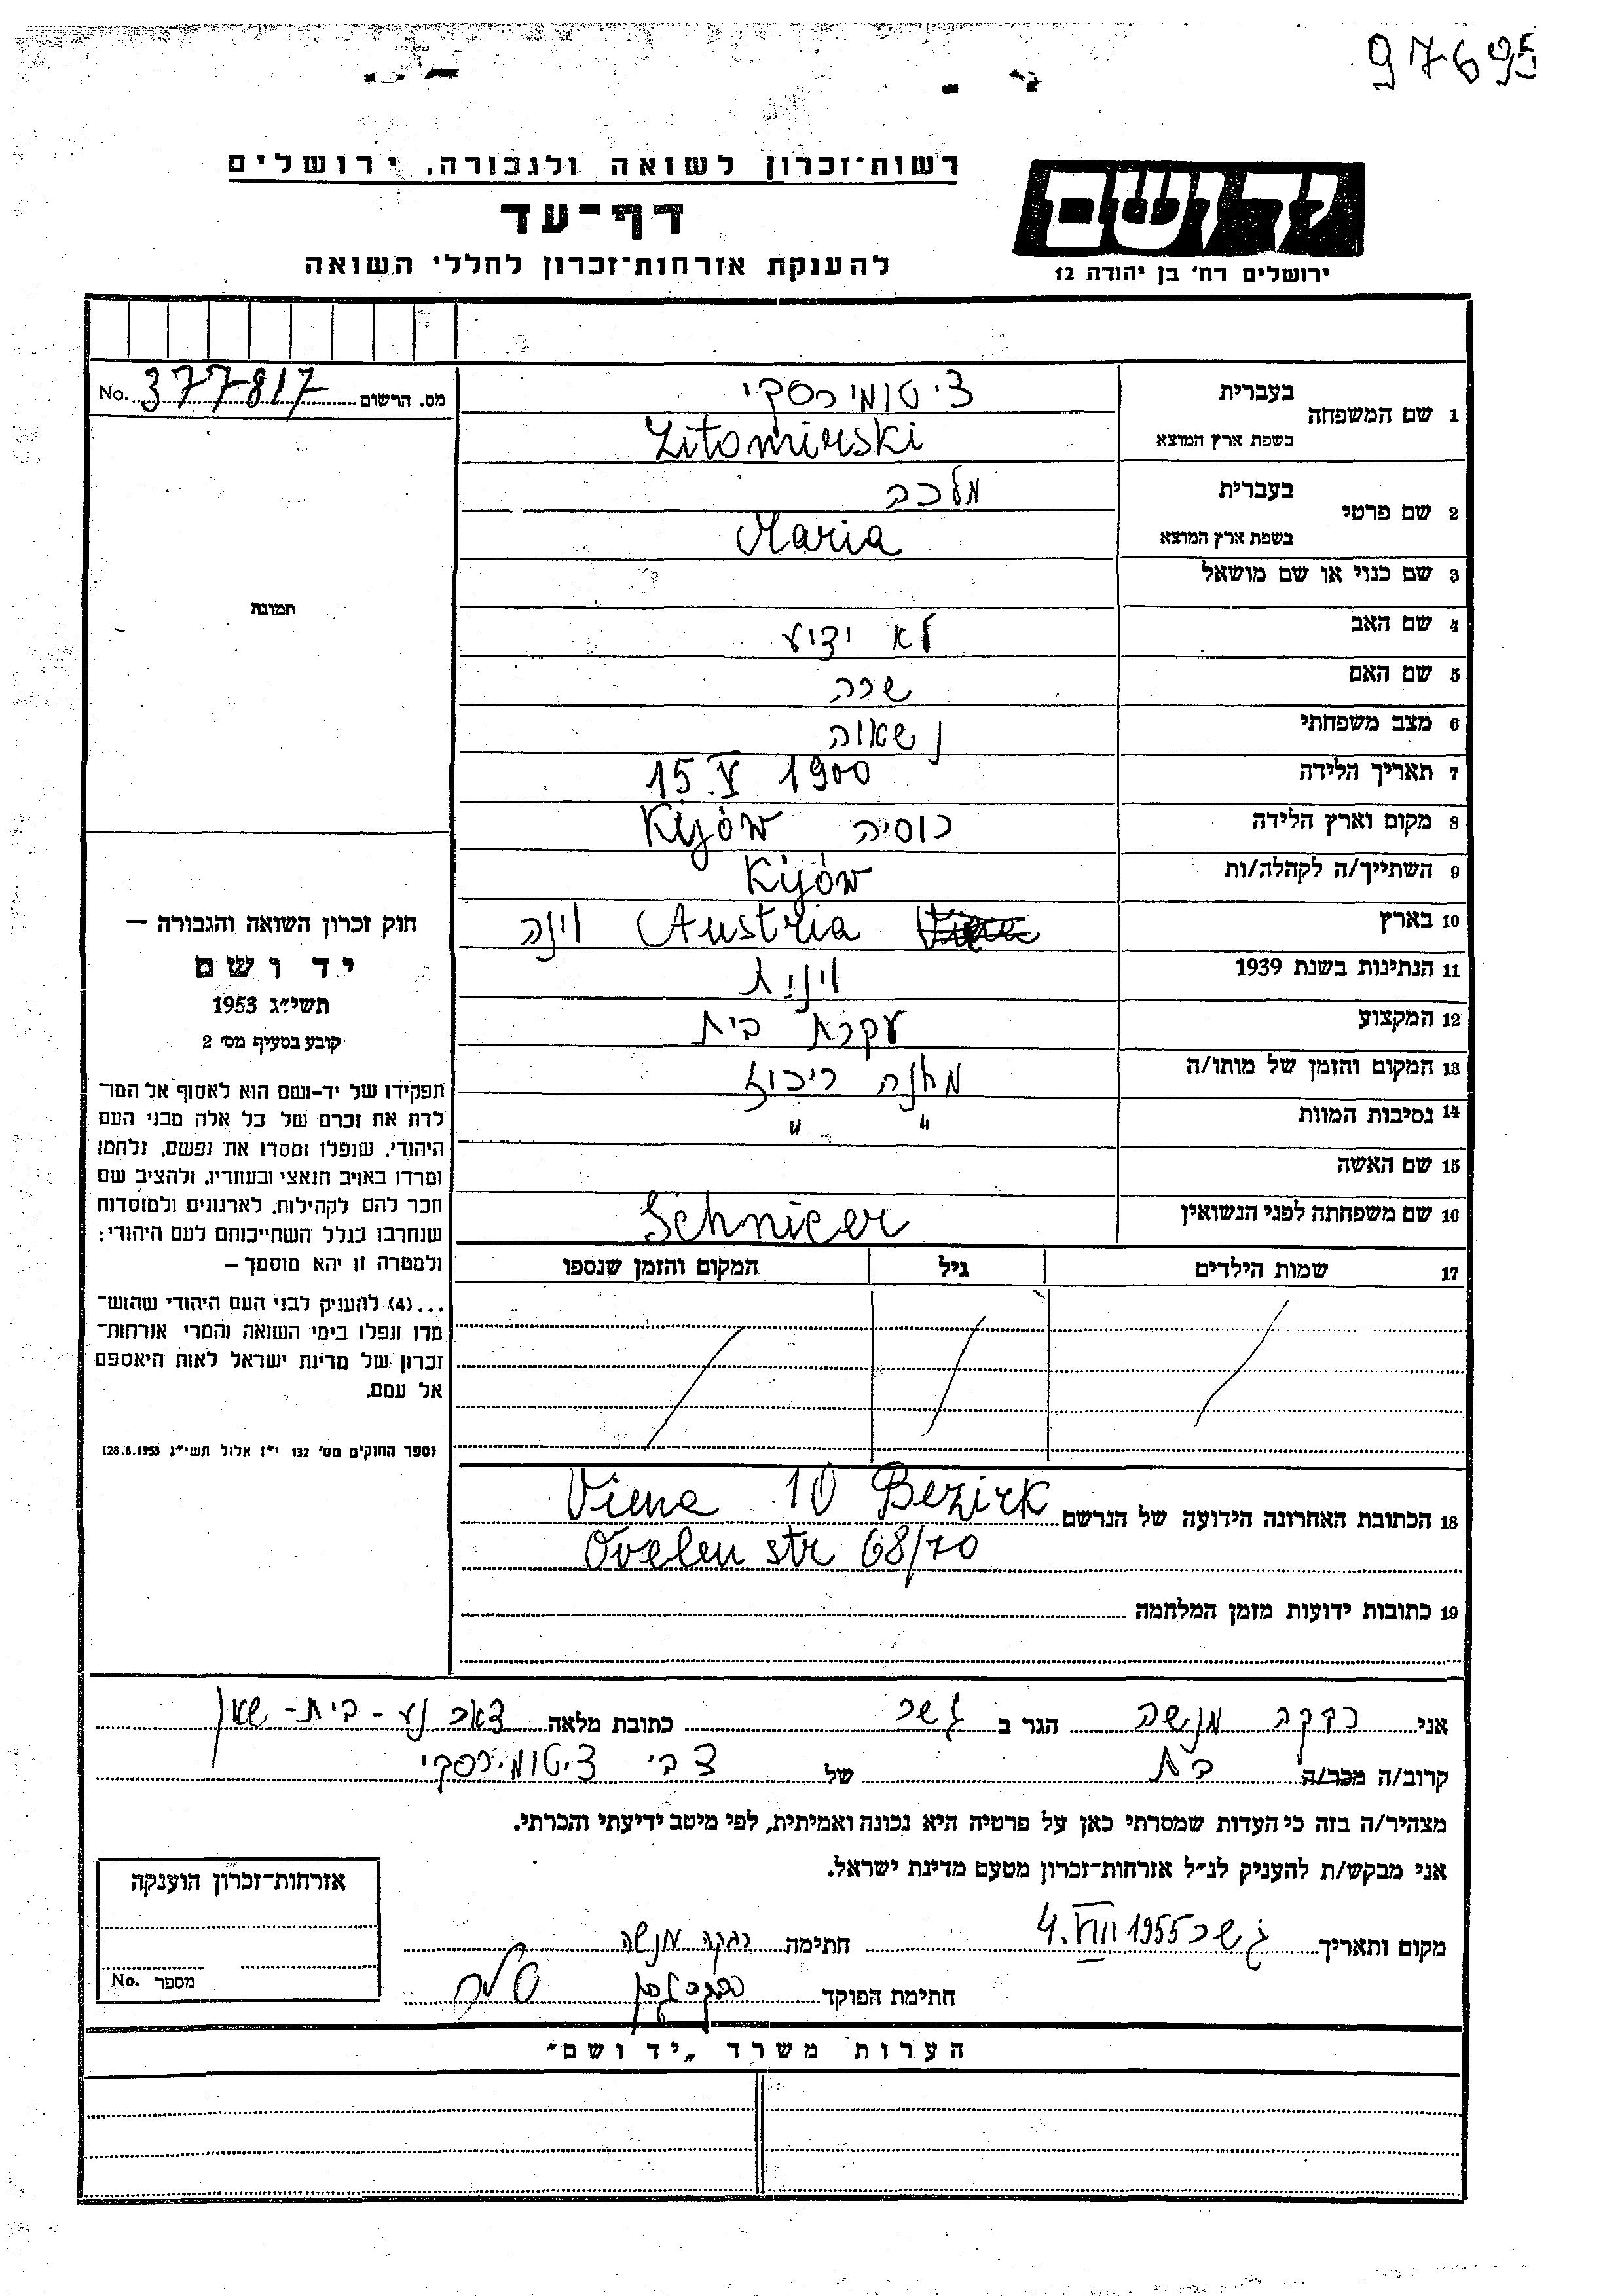 97695
רשות־זכרון לשואה ולגבורה, ירושלים
יד ושם
דף־עד
ירושלים רח׳ בן יהודה 12
להענקת אזרחות־זכרון לחללי השואה
מס. הרשום 377817 No.
1 שם המשפחה
בעברית ציטומירסקי
בשפת ארץ המוצא Zitomirski
2 שם פרטי
בעברית מלכה
בשפת ארץ המוצא Maria
3 שם כנוי או שם מושאל
תמונה
4 שם האב לא ידוע
5 שם האם שרה
6 מצב משפחתי נשאוה
7 תאריך הלידה 15.V 1900
8 מקום וארץ הלידה רוסיה Kijów
9 השתייך/ה לקהלה/ות Kijów
10 בארץ Austria וינה
11 הנתינות בשנת 1939 וינית
12 המקצוע עקרת בית
13 המקום והזמן של מותו/ה מחנה ריכוז
14 נסיבות המוות " "
15 שם האשה
16 שם משפחתה לפני הנשואין Schnicer
17 שמות הילדים גיל המקום והזמן שנספו
חוק זכרון השואה והגבורה —
יד ושם
תשי״ג 1953
קובע בסעיף מס׳ 2
תפקידו של יד-ושם הוא לאסוף אל המו־
לדת את זכרם של כל אלה מבני העם
היהודי, שנפלו ומסרו את נפשם, נלחמו
ומרדו באויב הנאצי ובעוזריו, ולהציב שם
וזכר להם לקהילות, לארגונים ולמוסדות
שנחרבו בגלל השתייכותם לעם היהודי;
ולמטרה זו יהא מוסמך —
...(4) להעניק לבני העם היהודי שהוש־
מדו ונפלו בימי השואה והמרי אזרחות־
זכרון של מדינת ישראל לאות היאספם
אל עמם.
(ספר החוקים מס׳ 132 י״ז אלול תשי״ג 28.8.1953)
18 הכתובת האחרונה הידועה של הנרשם Viena 10 Bezirk
Ovelen str 68/70
19 כתובות ידועות מזמן המלחמה
אני רבקה מנשה הגר ב גשר כתובת מלאה דאר נע - בית - שאן
קרוב/ה מכר/ה בת של צבי ציטומירסקי
מצהיר/ה בזה כי העדות שמסרתי כאן על פרטיה היא נכונה ואמיתית, לפי מיטב ידיעתי והכרתי.
אני מבקש/ת להעניק לנ״ל אזרחות־זכרון מטעם מדינת ישראל.
מקום ותאריך גשר 4.VIII 1955 חתימה רבקה מנשה
חתימת הפוקד
אזרחות־זכרון הוענקה
מספר No.
הערות משרד „יד ושם"